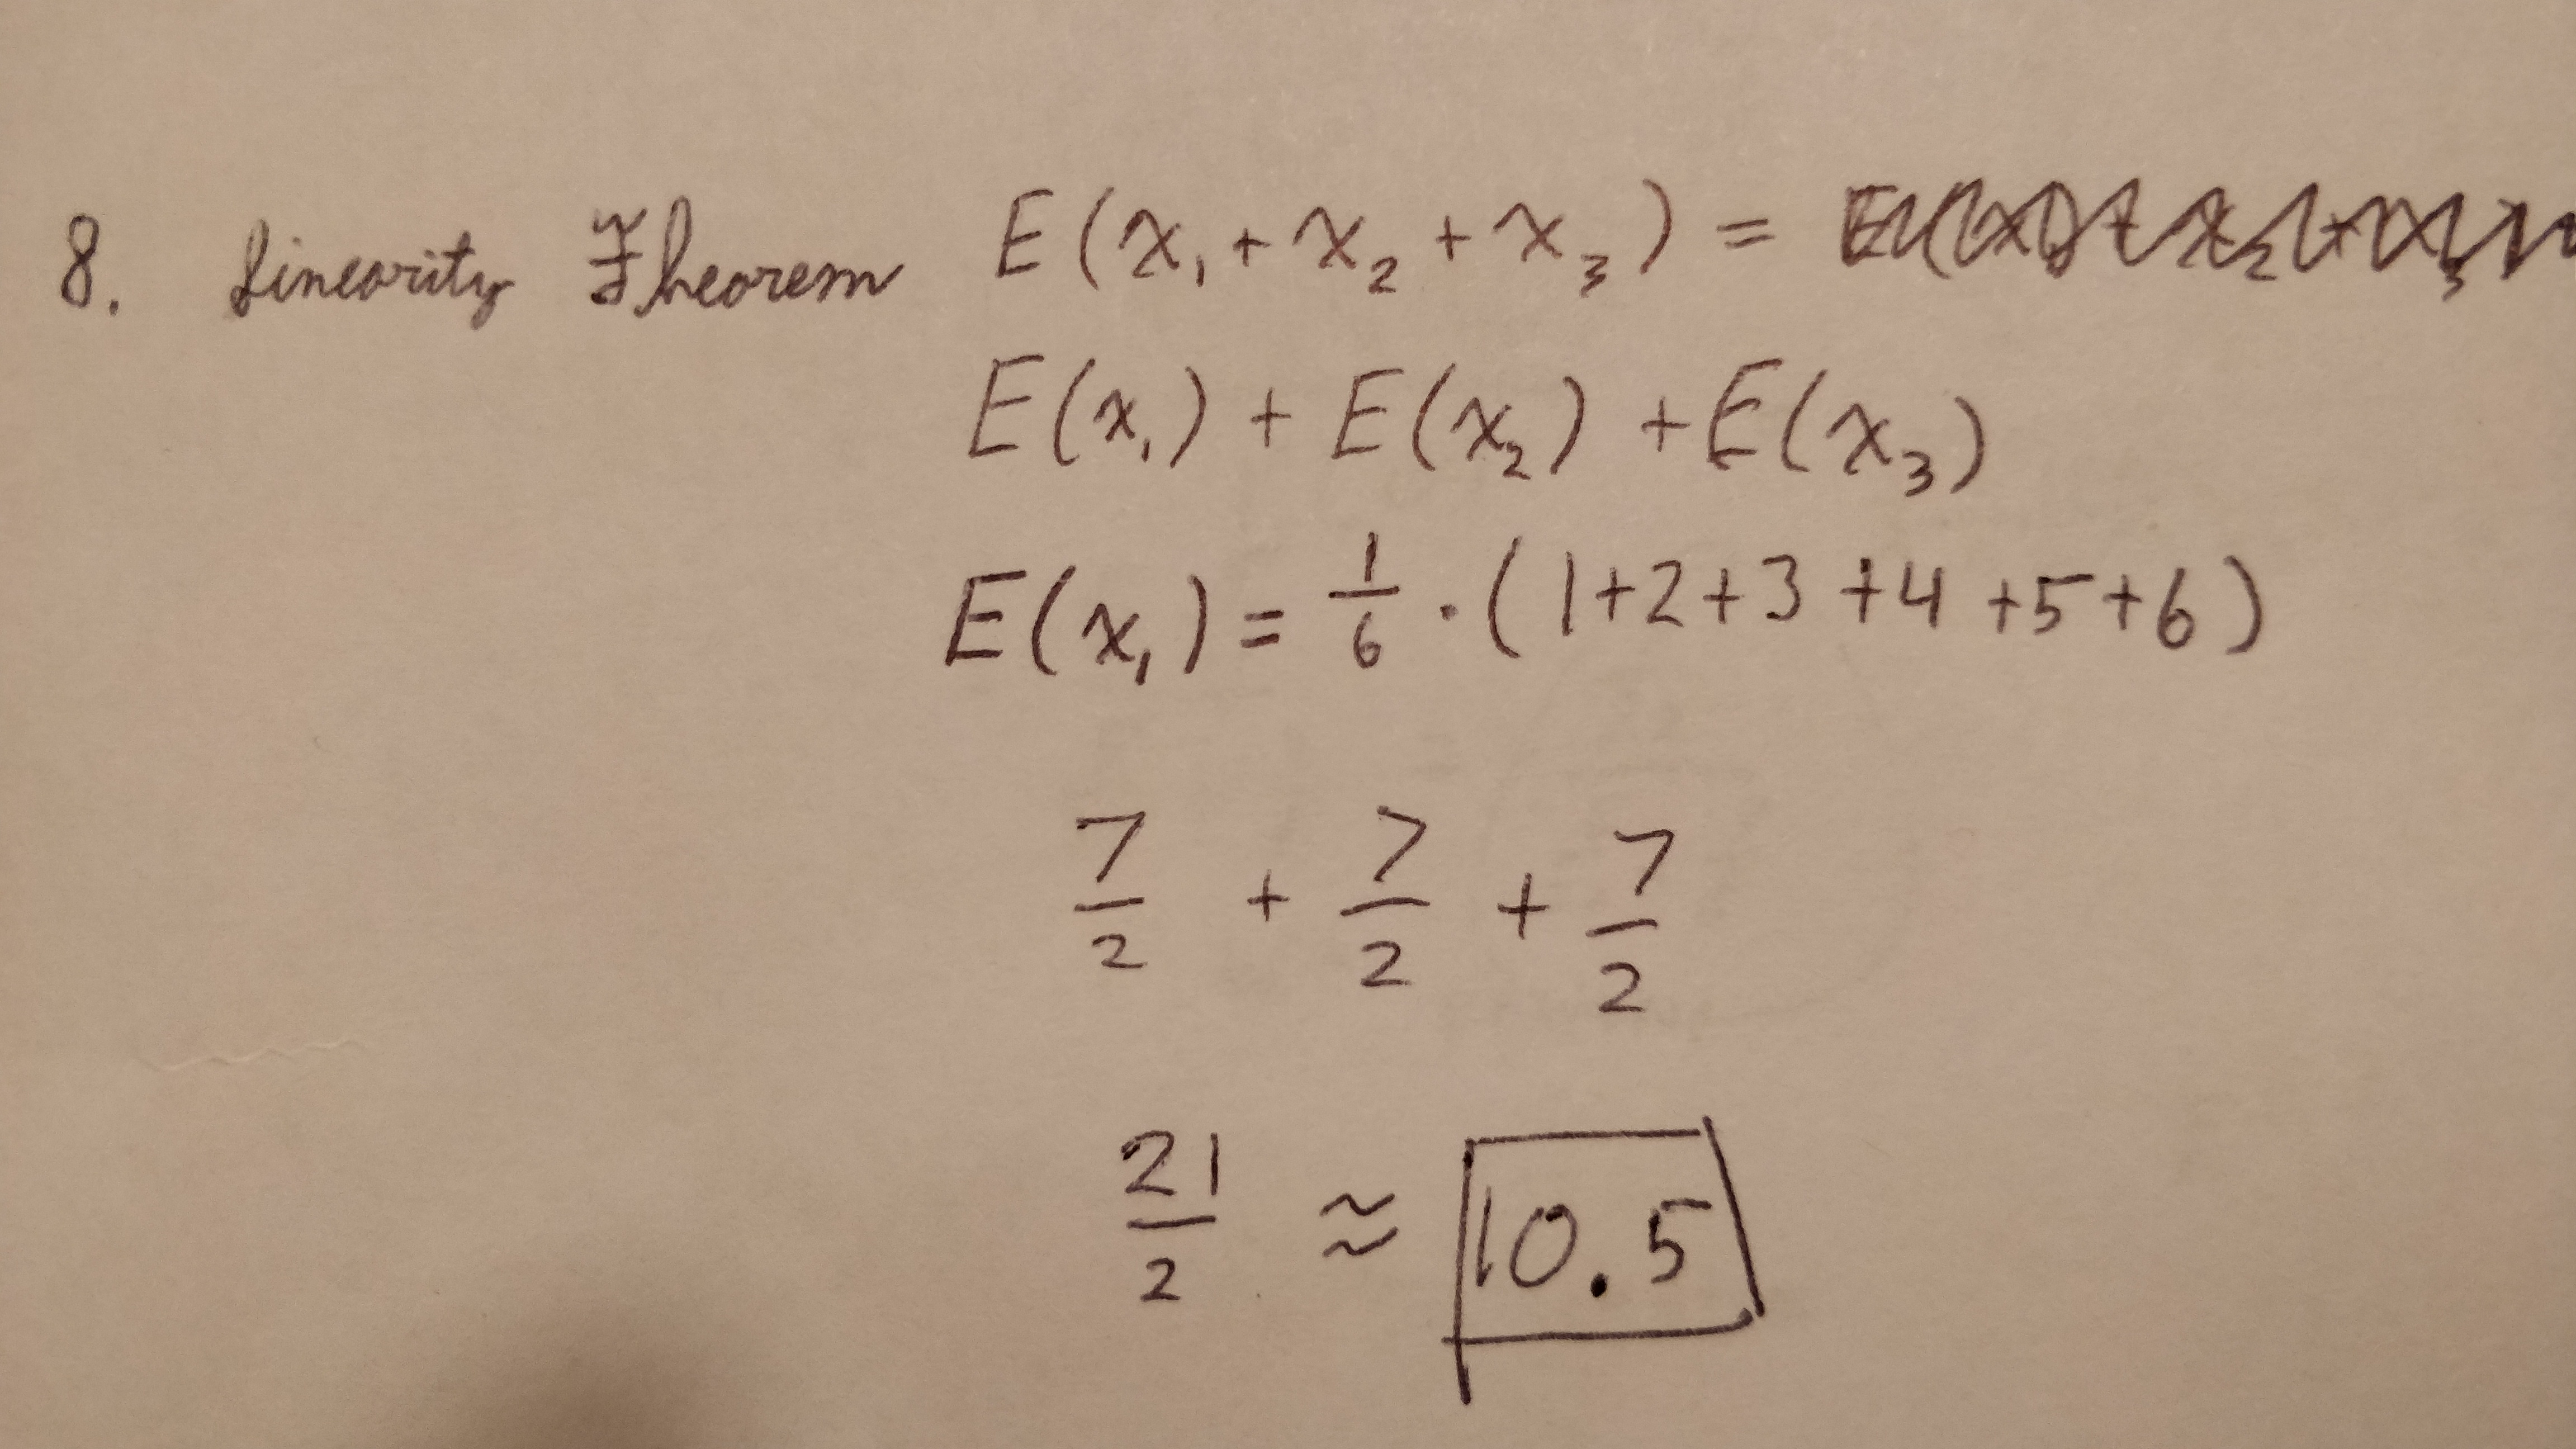 8. Linearity Theorem E(x₁ + x₂ + x₃) =
E(x₁) + E(x₂) + E(x₃)
E(x₁) = 1/6 · (1+2+3+4+5+6)
7/2 + 7/2 + 7/2
21/2 ≈ 10.5